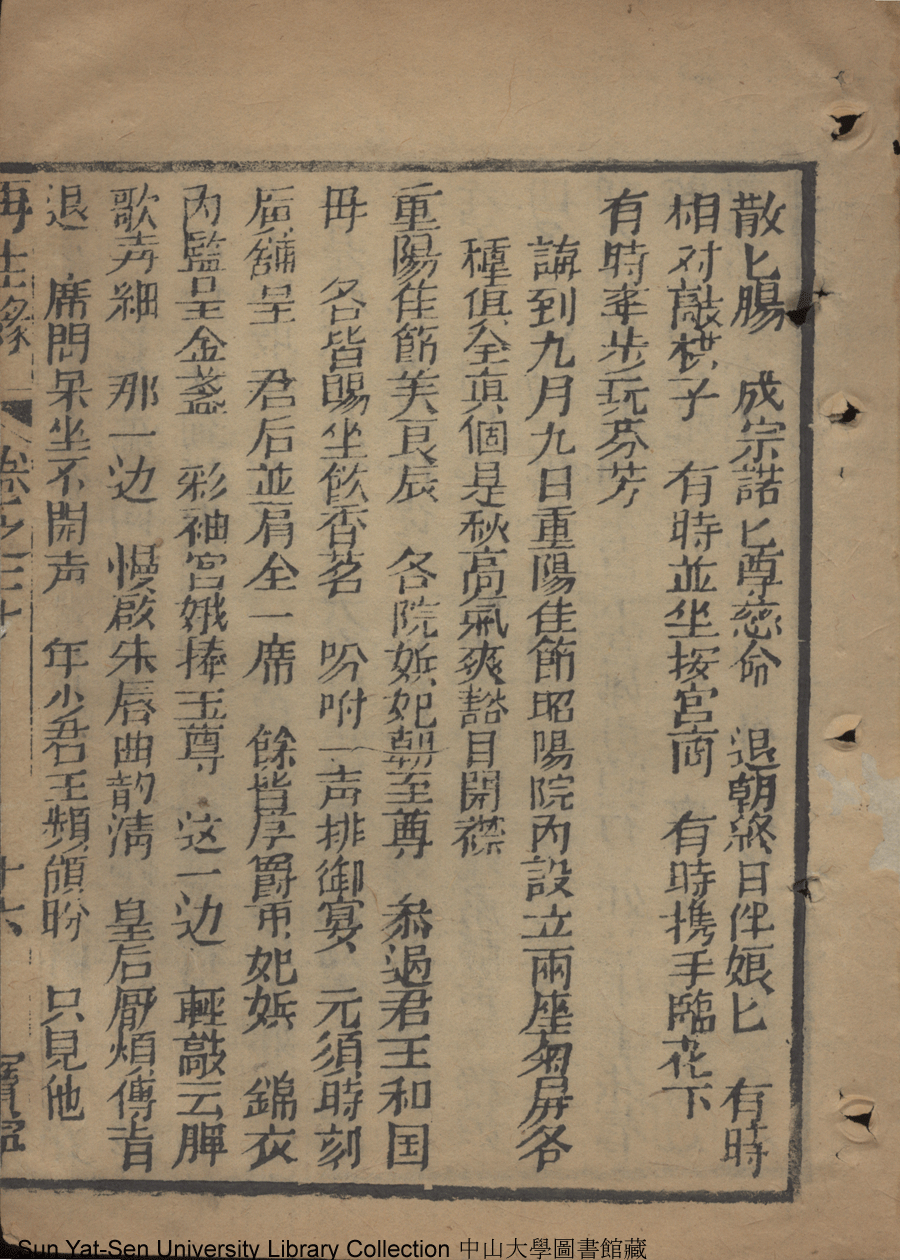 散匕腸　成宗諾匕尊慈命　退朝終日伴娘匕　有時
相对敲棋子　有時並坐按宮商　有時携手臨花下
有時牽步玩芬芳
講到九月九日重陽佳節昭陽院內設立兩座菊屏各
種俱全真個是秋高氣爽豁目開襟
重陽佳節美良辰　各院嬪妃朝至尊　叅過君王和国
毋　各皆賜坐飲香茗　吩咐一声排御宴　元須時刻
后舗呈　君后並肩仝一席　餘皆序爵甪妃嬪　錦衣
內監呈金盞　彩袖宮娥捧玉尊　这一边　輕敲云脾
歌声細　那一边　慢啟朱唇曲韵清　皇后厭煩傳旨
退　席間呆坐不開声　年少君王頻頻盼　只見他
再生緣　卷之二十　十六　寶寧
Sun Yat-Sen University Library Collection 中山大學圖書館藏